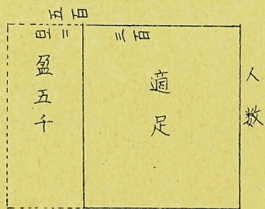 五百
二百
三百
盈五千
適足
人数